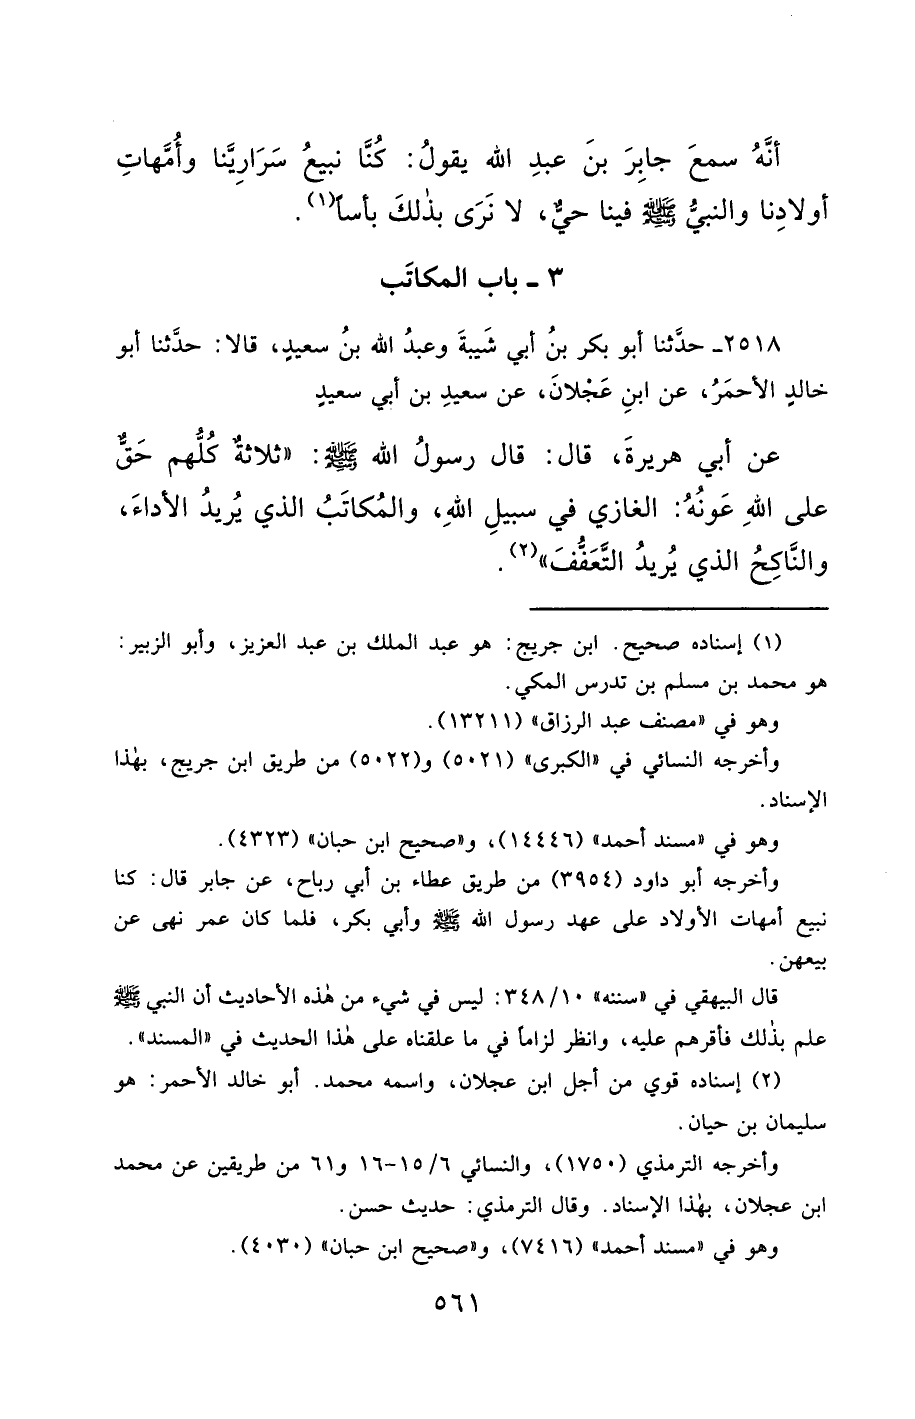 أنَّهُ سمعَ جابِرَ بنَ عبدِ الله يقولُ: كُنَّا نبيعُ سَرَارِيَّنا وأُمَّهاتِ
أولادِنا والنبيُّ ﷺ فينا حيٌّ، لا نَرَى بذٰلكَ بأساً(١).
٣ ـ باب المكاتَب
٢٥١٨ـ حدَّثنا أبو بكر بنُ أبي شَيبةَ وعبدُ الله بنُ سعيدٍ، قالا: حدَّثنا أبو
خالدٍ الأحمَرُ، عن ابنِ عَجْلانَ، عن سعيدِ بن أبي سعيدٍ
عن أبي هريرةَ، قال: قال رسولُ الله ﷺ: «ثلاثةٌ كُلُّهم حَقٌّ
على اللهِ عَونُهُ: الغازي في سبيلِ اللهِ، والمُكاتَبُ الذي يُريدُ الأداءَ،
والنَّاكِحُ الذي يُريدُ التَّعَفُّفَ»(٢).
(١) إسناده صحيح. ابن جريج: هو عبد الملك بن عبد العزيز، وأبو الزبير:
هو محمد بن مسلم بن تدرس المكي.
وهو في «مصنف عبد الرزاق» (١٣٢١١).
وأخرجه النسائي في «الكبرى» (٥٠٢١) و(٥٠٢٢) من طريق ابن جريج، بهٰذا
الإسناد.
وهو في «مسند أحمد» (١٤٤٤٦)، و«صحيح ابن حبان» (٤٣٢٣).
وأخرجه أبو داود (٣٩٥٤) من طريق عطاء بن أبي رباح، عن جابر قال: كنا
نبيع أمهات الأولاد على عهد رسول الله ﷺ وأبي بكر، فلما كان عمر نهى عن
بيعهن.
قال البيهقي في «سننه» ١٠/٣٤٨: ليس في شيء من هٰذه الأحاديث أن النبي ﷺ
علم بذٰلك فأقرهم عليه، وانظر لزاماً في ما علقناه على هٰذا الحديث في «المسند».
(٢) إسناده قوي من أجل ابن عجلان، واسمه محمد. أبو خالد الأحمر: هو
سليمان بن حيان.
وأخرجه الترمذي (١٧٥٠)، والنسائي ٦/١٥-١٦ و٦١ من طريقين عن محمد
ابن عجلان، بهٰذا الإسناد. وقال الترمذي: حديث حسن.
وهو في «مسند أحمد» (٧٤١٦)، و«صحيح ابن حبان» (٤٠٣٠).
٥٦١